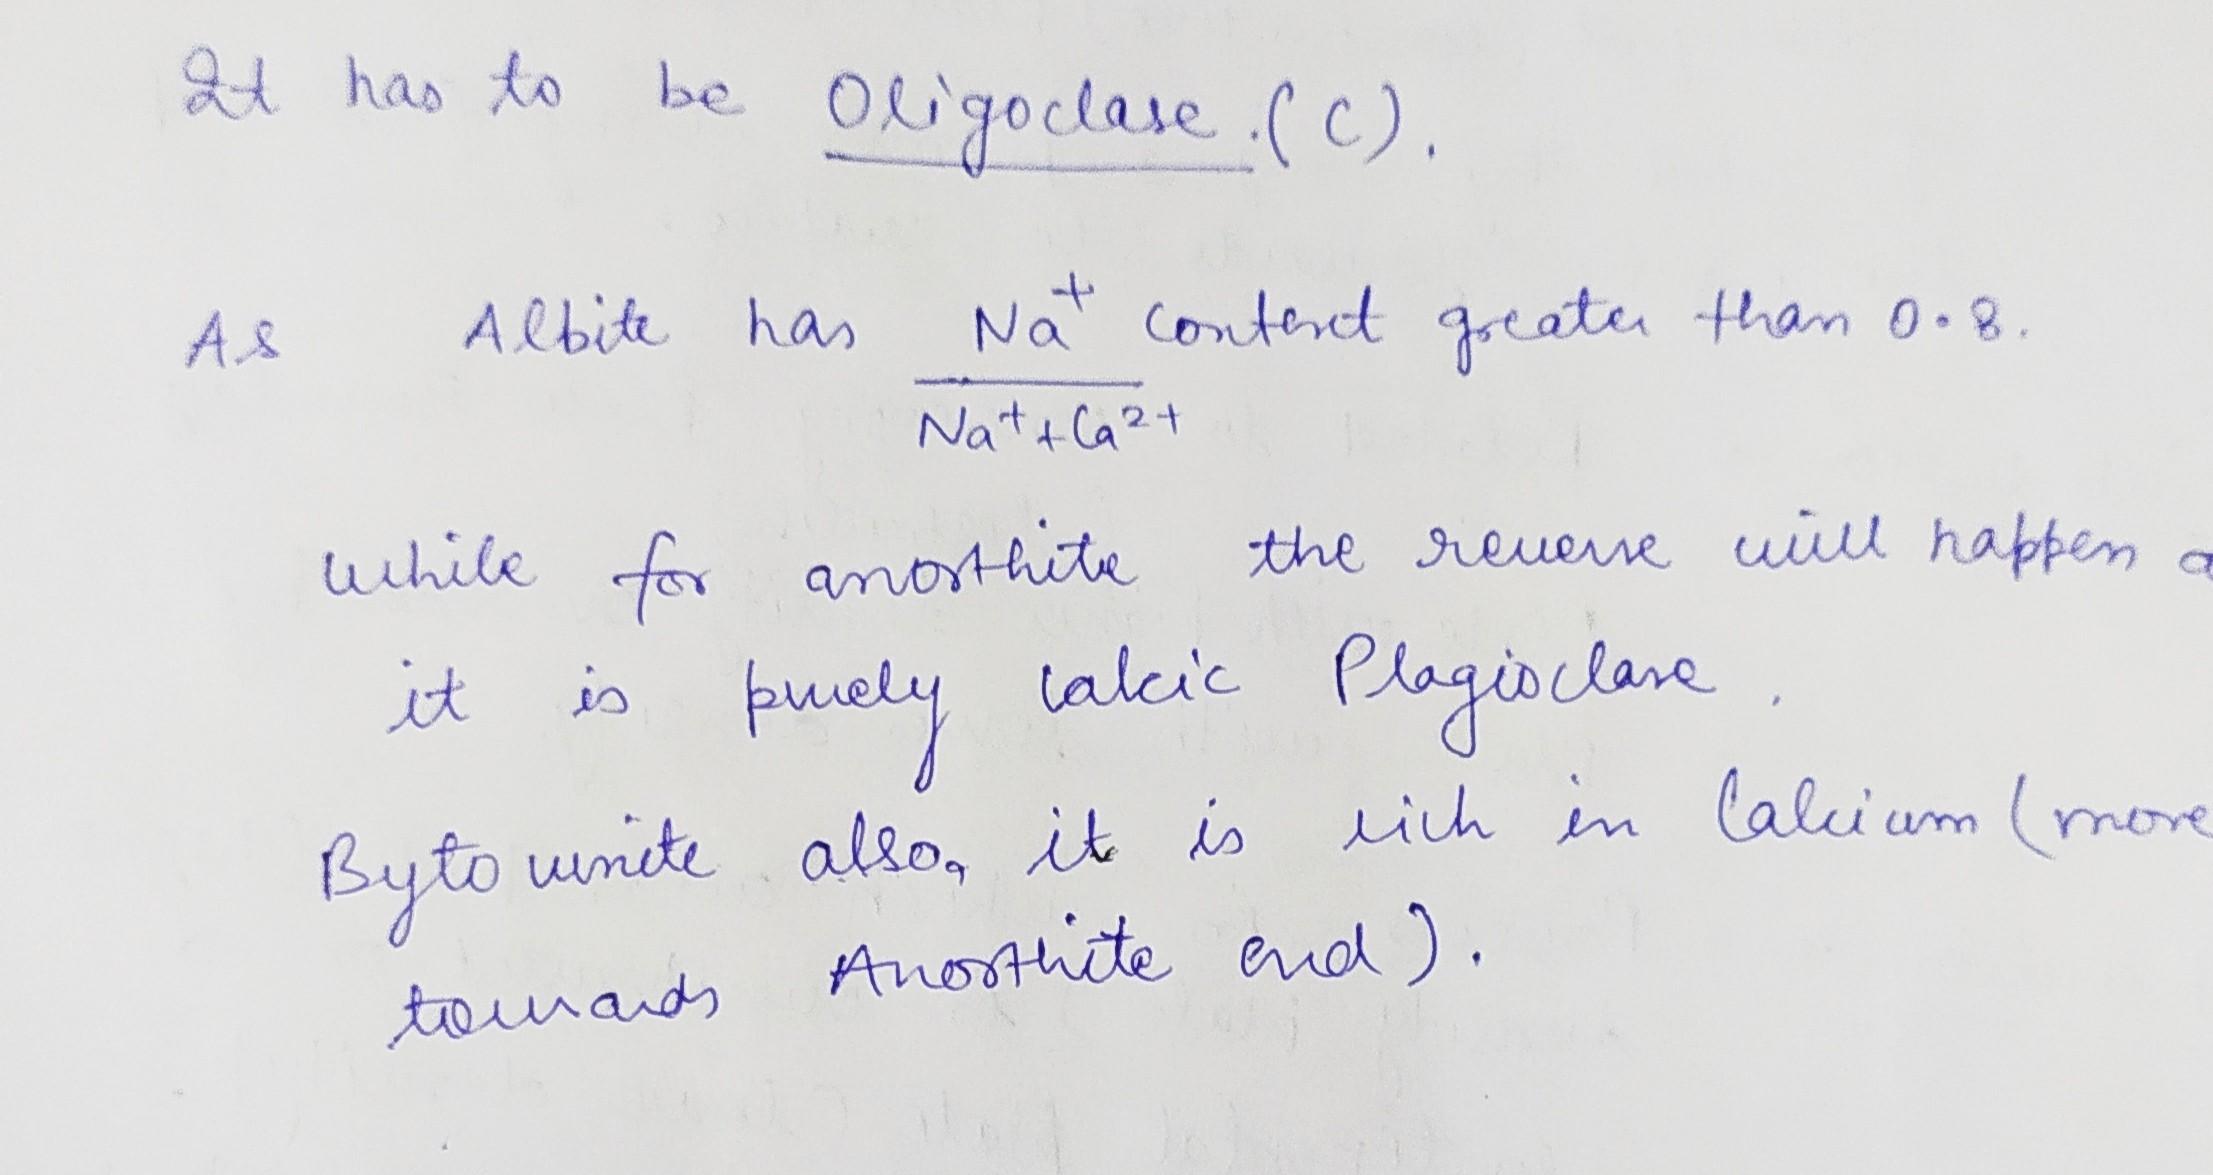 It has to be Oligoclase. (C).
As Albite has Na⁺ content greater than 0.8.
Na⁺+Ca²⁺
while for anorthite the reverse will happen a
it is purely calcic Plagioclase.
Bytownite also, it is rich in Calcium (more
towards Anorthite end).